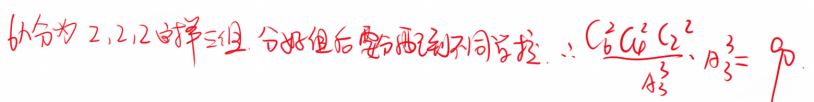 6人分为2,2,2这样三组.分好组后要分配到不同学校.∴ \frac{C_6^2 C_4^2 C_2^2}{A_3^3}·A_3^3=90.